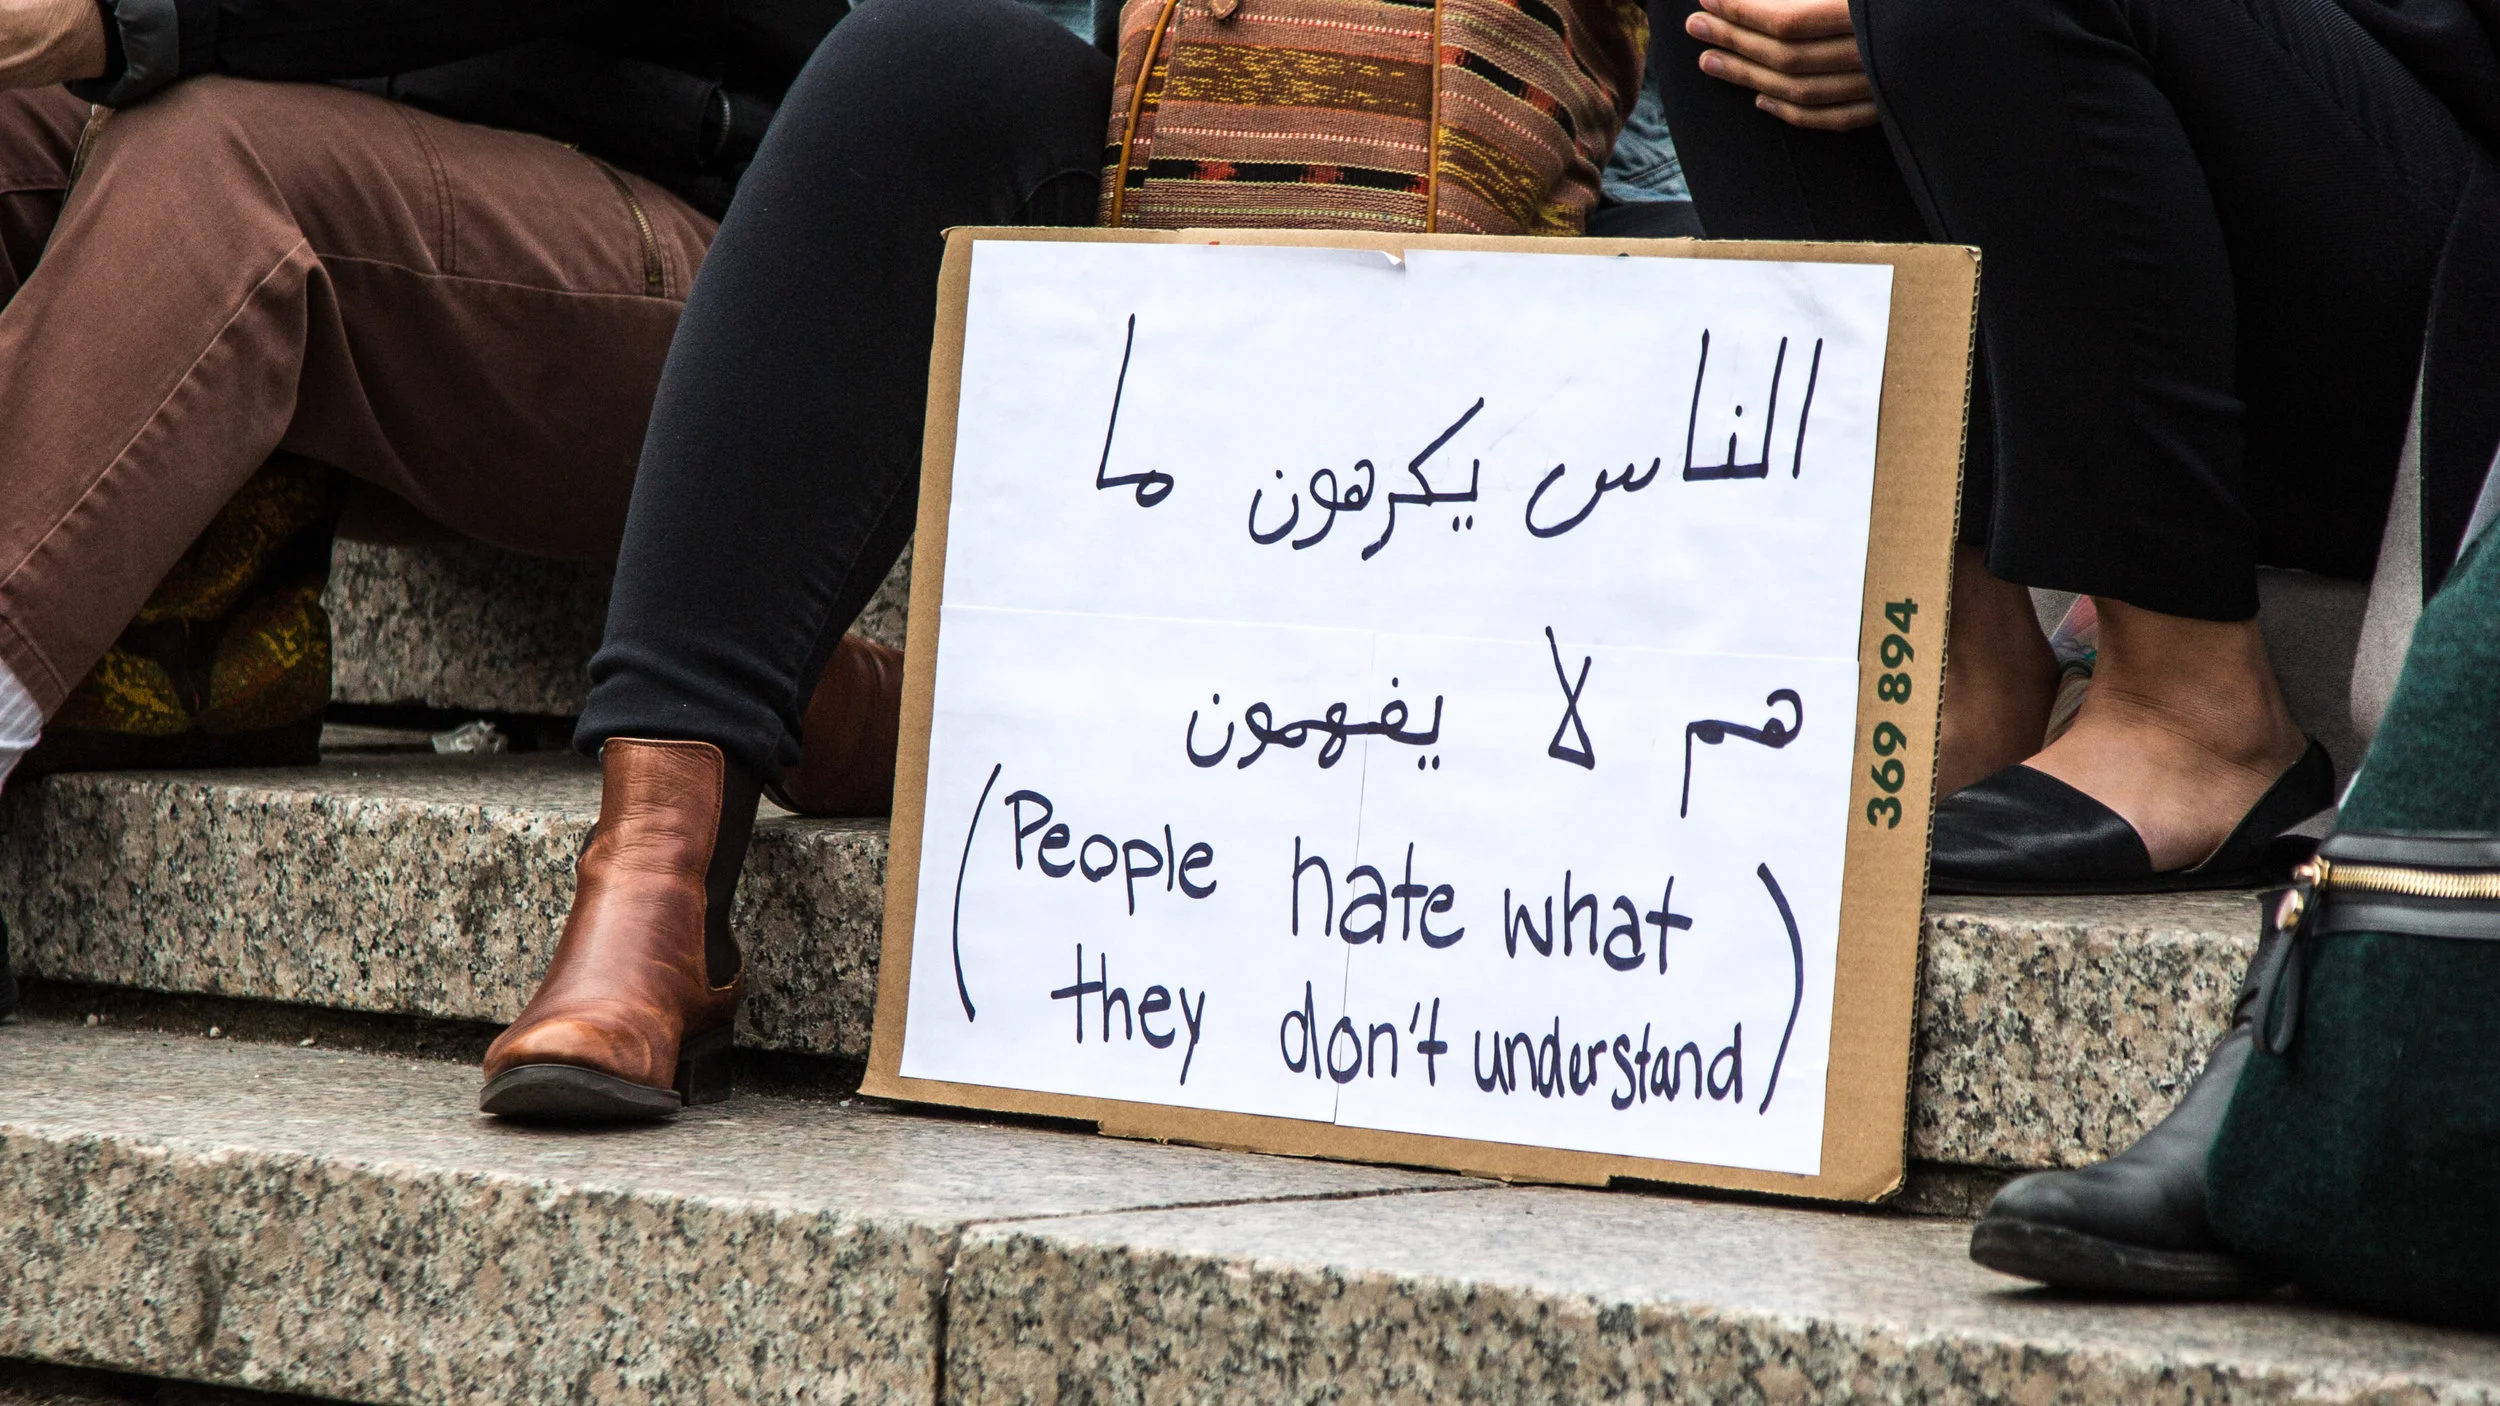 الناس يكرهون ما
هم لا يفهمون
(People hate what
they don't understand)
369 894